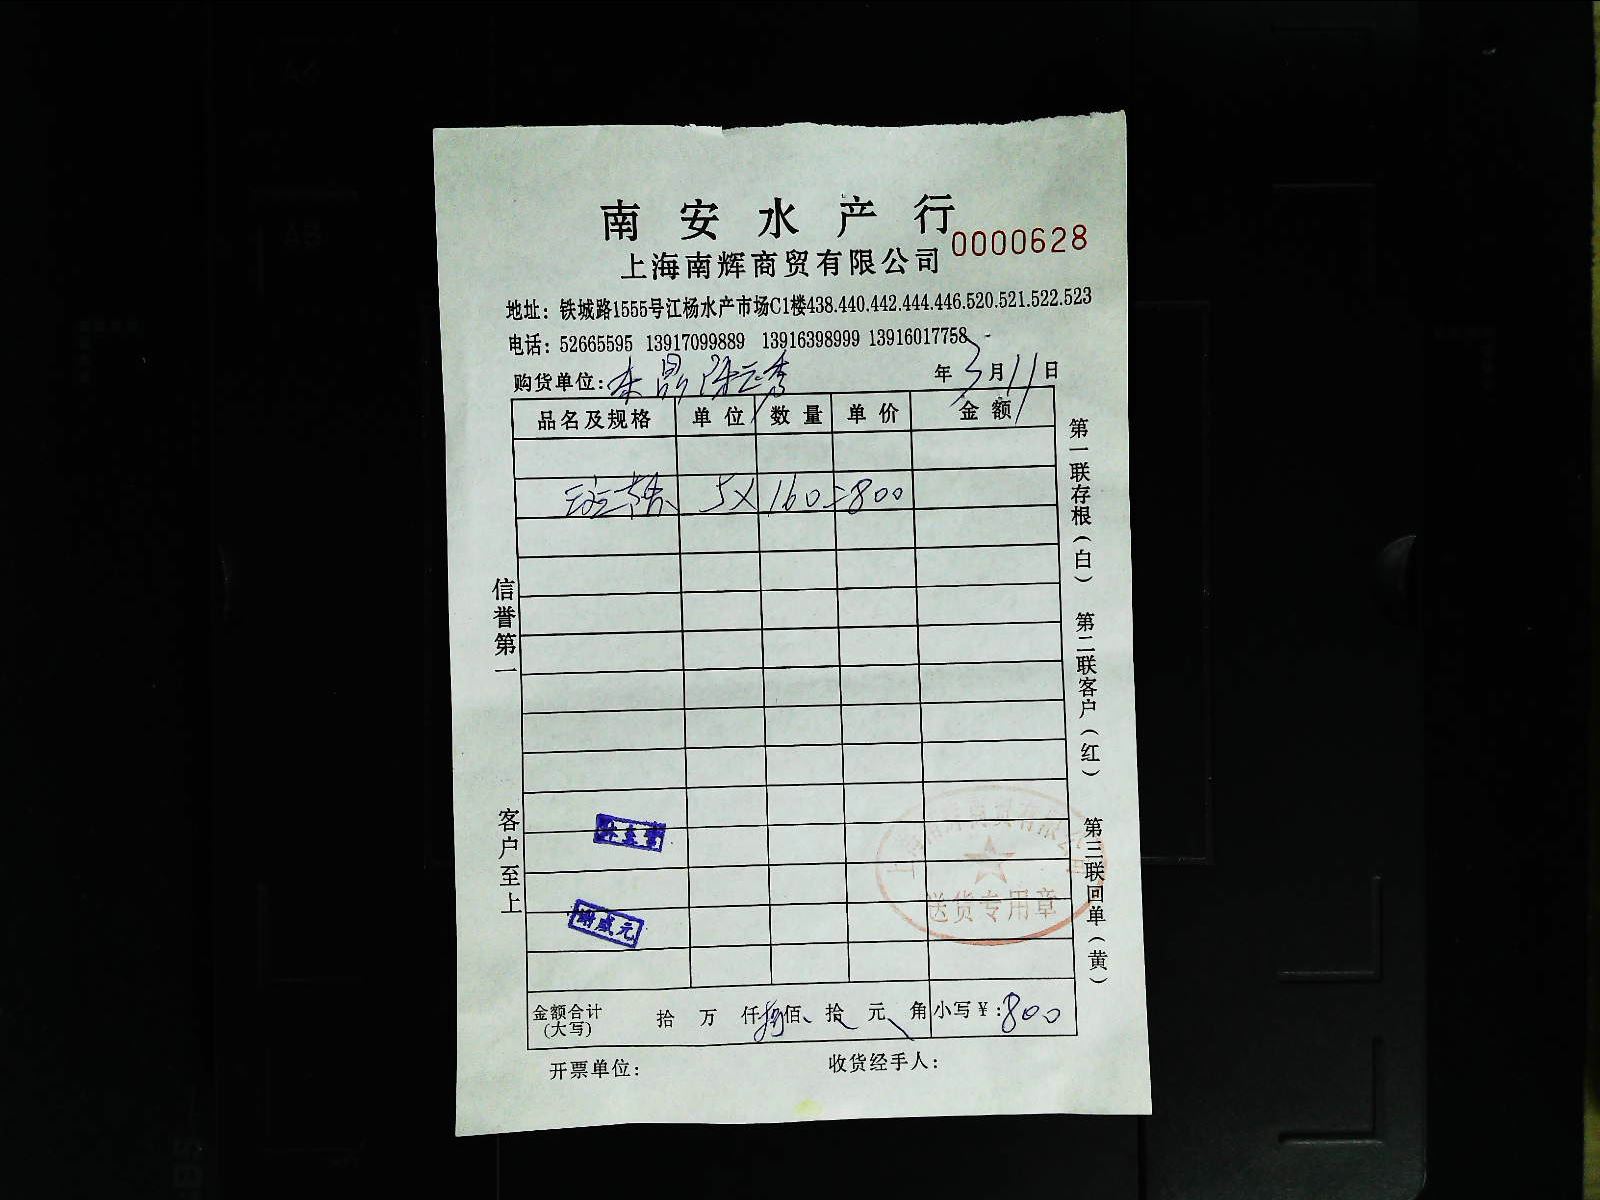 南安水产行
0000628
上海南辉商贸有限公司
地址：铁城路1555号江杨水产市场C1楼438.440.442.444.446.520.521.522.523
电话：52665595 13917099889 13916398999 13916017758
购货单位： 年3月11日
品名及规格 单位 数量 单价 金额
5× 160=800
信誉第一
客户至上
第一联存根（白） 第二联客户（红） 第三联回单（黄）
送货专用章
金额合计（大写） 拾 万 仟捌佰 拾 元 角 小写￥：800
开票单位： 收货经手人：